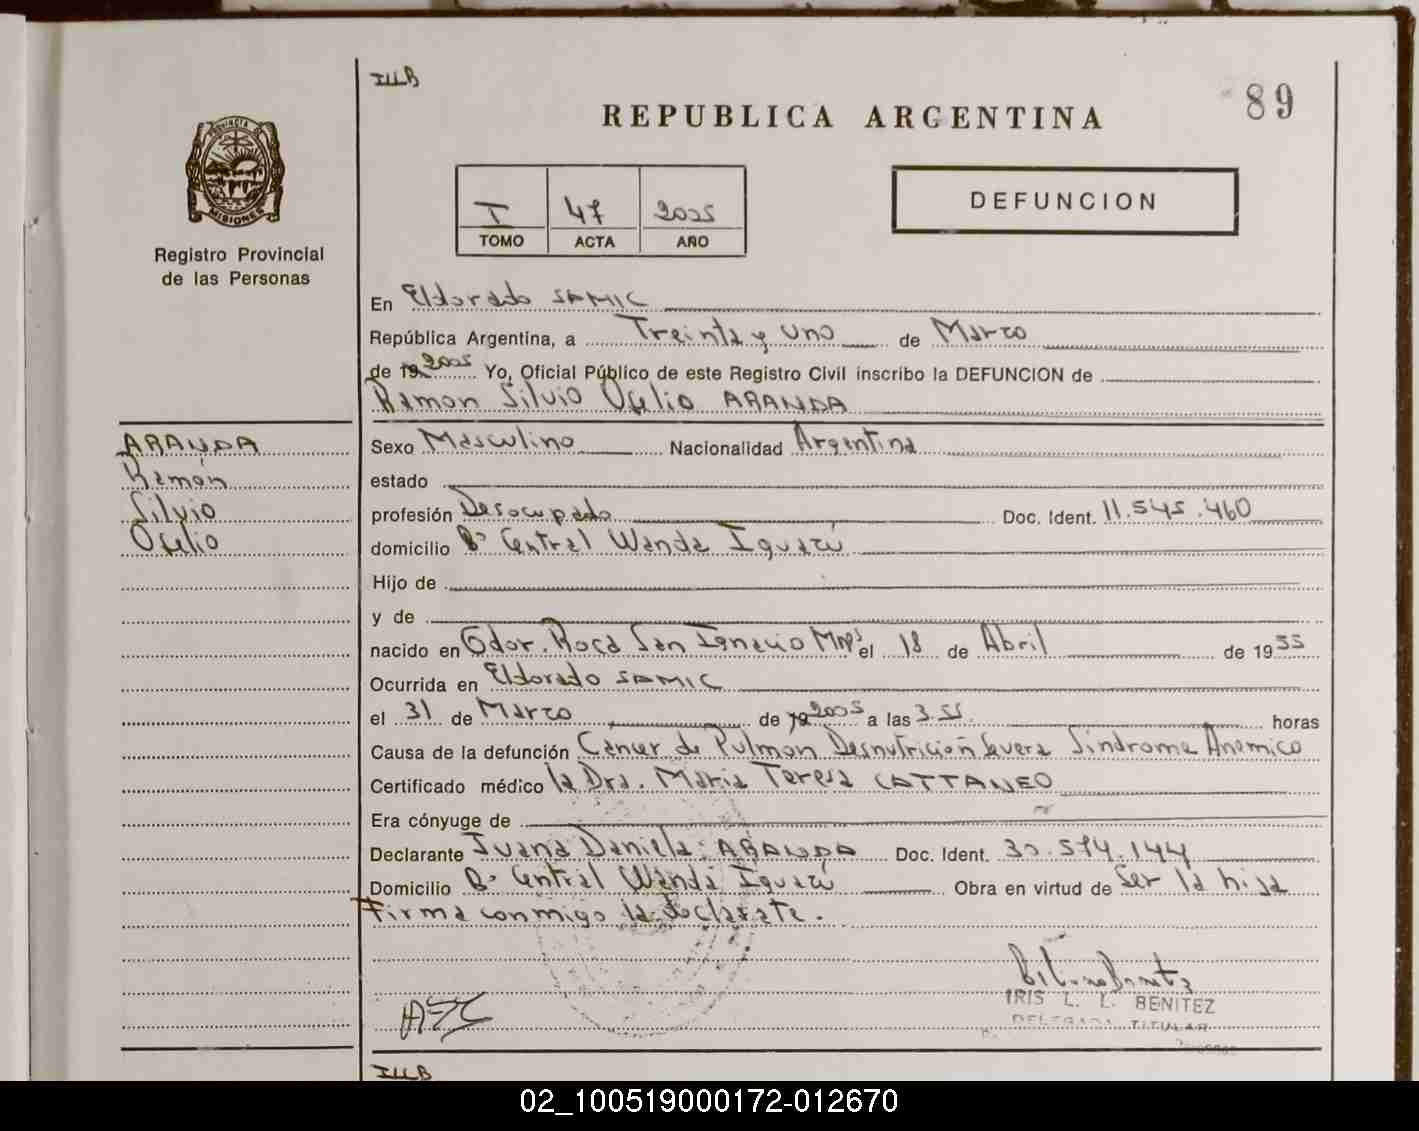 ILLB
89
REPUBLICA ARGENTINA
PROVINCIA DE
MISIONES
Registro Provincial
de las Personas
I 47 2005
TOMO ACTA AÑO
DEFUNCION
En Eldorado SAMIC
República Argentina, a Treinta y uno de Marzo
de 19 2005 Yo, Oficial Público de este Registro Civil inscribo la DEFUNCION de
Ramon Silvio Ofelio ARANDA
ARANDA
Ramón
Silvio
Ofelio
Sexo Masculino Nacionalidad Argentina
estado
profesión Desocupado Doc. Ident. 11.545.460
domicilio Bº Central Wanda Iguazú
Hijo de
y de
nacido en Gdor. Roca San Ignacio Mnes el 18 de Abril de 1955
Ocurrida en Eldorado SAMIC
el 31 de Marzo de 19 2005 a las 3.55. horas
Causa de la defunción Cáncer de Pulmon Desnutrición Severa Sindrome Anemico
Certificado médico la Dra. Maria Teresa CATTANEO
Era cónyuge de
Declarante Juana Daniela ARANDA Doc. Ident. 30.574.144
Domicilio Bº Central Wanda Iguazú Obra en virtud de Ser la hija
Firma conmigo la declarate.
IRIS L. L. BENITEZ
DELEGADA TITULAR
ILLB
02_100519000172-012670